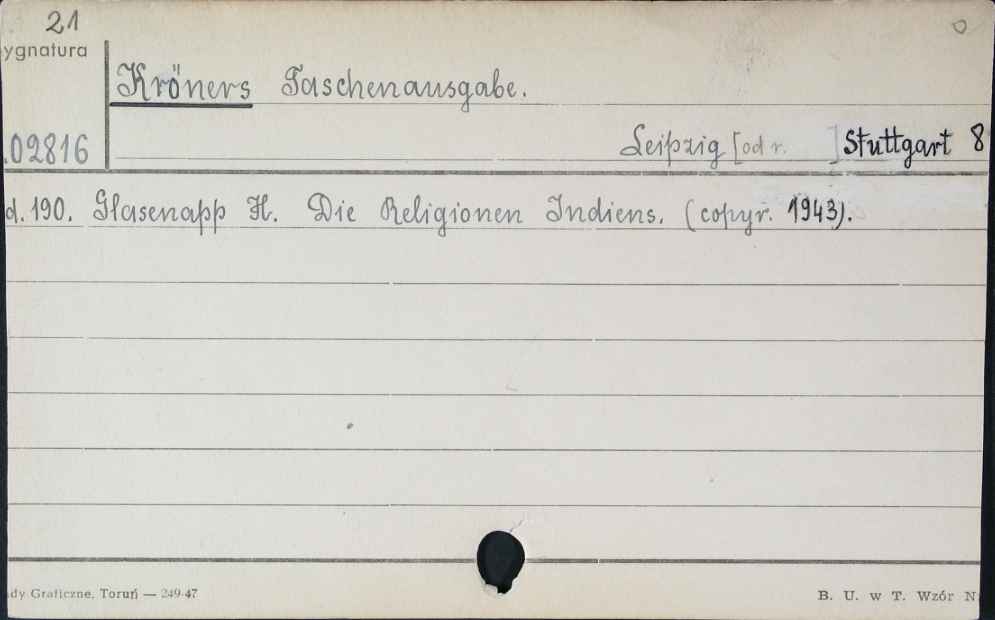 21
ygnatura
Kröners Taschenausgabe.
.02816
Leipzig [od r. ] Stuttgart 8
d. 190. Glasenapp H. Die Religionen Indiens. (copyr. 1943).
dy Graficzne, Toruń — 249-47
B. U. w T. Wzór N